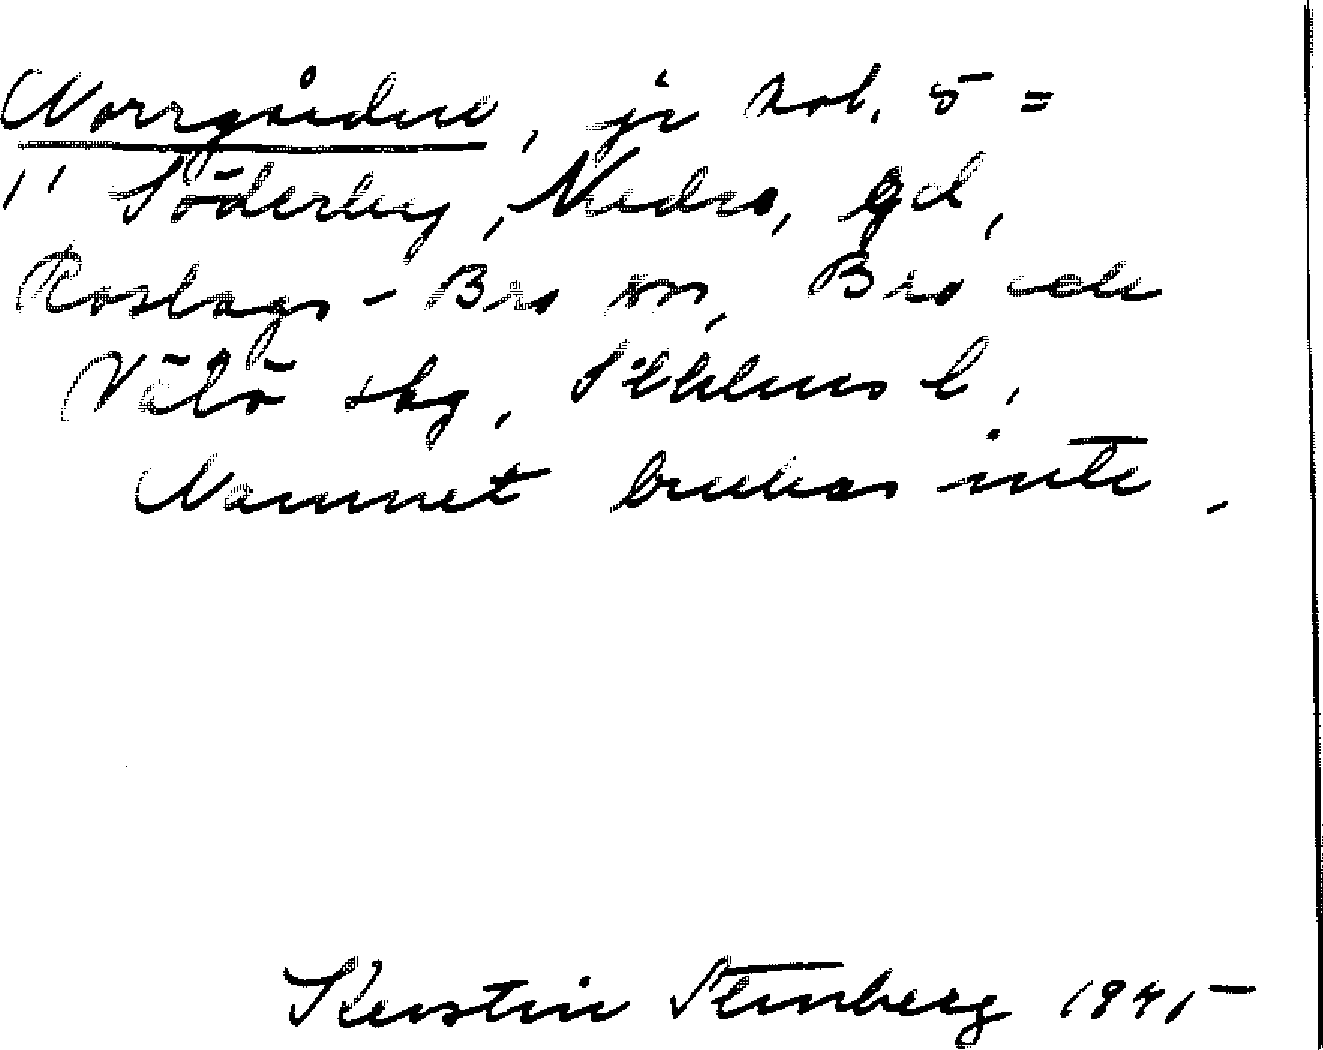 Norrgården, jr kol. 5 =
" Söderby, Nedra, gd,
Roslags-Bro sn, Bro och
Vätö skg, Sthlms l.
Namnet brukas inte.
Kerstin Stenberg 1945